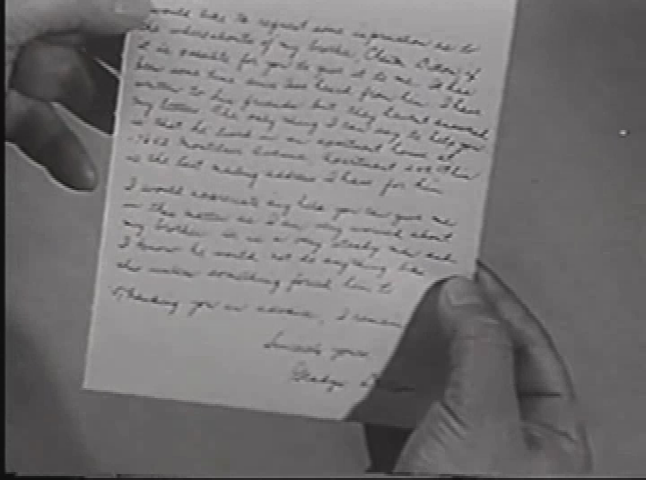 would like to request some information as to
the whereabouts of my brother, Charles
it is possible for you to give it to me. It has
been some time since I have heard from him. I have
written to his friends but they haven't answered
my letters. The only thing I can say to help you
is that he lived in an apartment house at
Avenue, apartment
is the last mailing address I have for him.
I would appreciate any help you can give me
in this matter as I am very worried about
my brother. He is a very steady man and
I know he would not do anything like
this unless something forced him to.
Thanking you in advance, I remain
Sincerely yours,
Gladys